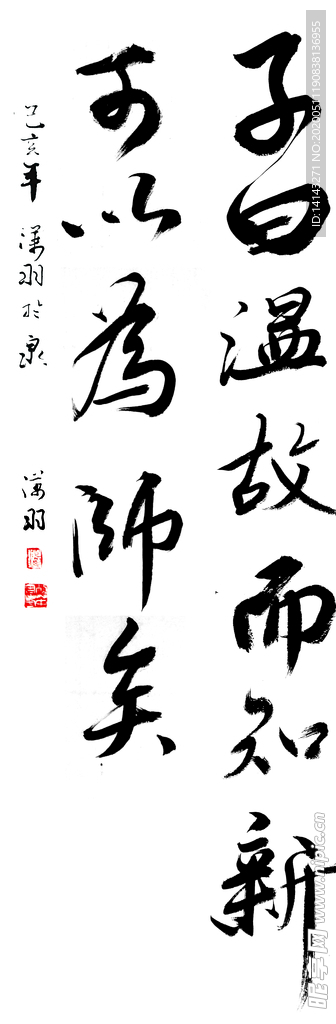 子曰温故而知新
可以為師矣
己亥年 漢羽於泉
漢羽
NO:20200511190838136955
昵享网 www.nipic.cn